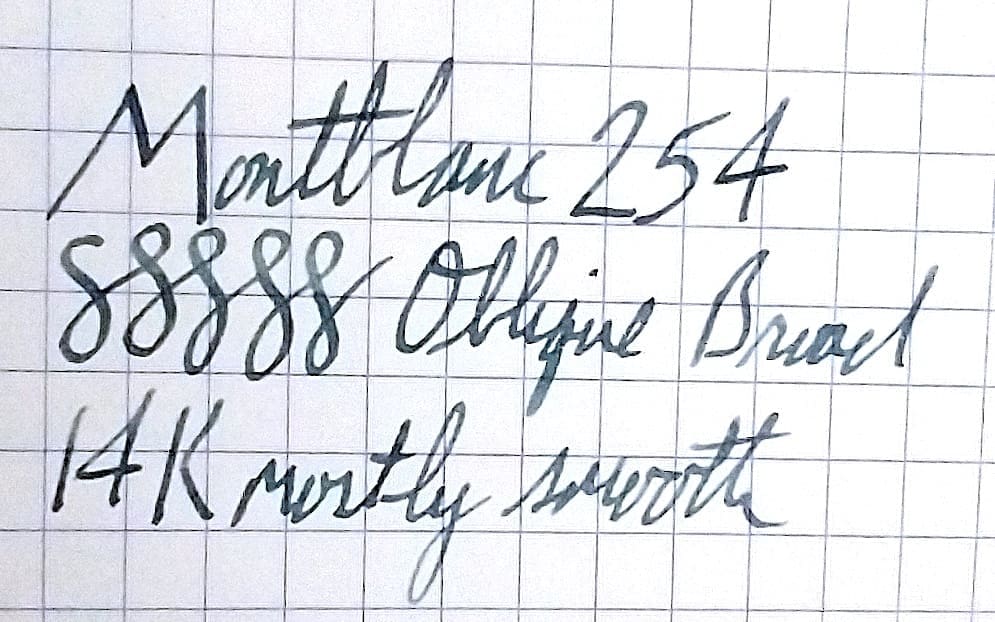 Montblanc 254
88888 Oblique Broad
14K mostly smooth